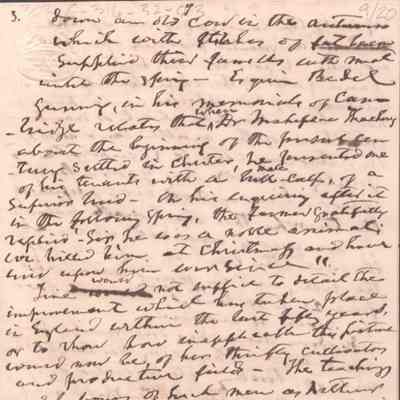 3.
down an old cow in the autumn
which with flitches of bacon
supplied their families with meat
until the Spring – Esquire Bedel
Gunning, in his memorials of Cam
-bridge relates that when Dr Makepeace Thackery
about the beginning of the present cen
-tury settled in Chester, he presented one
of his tenants with a male calf, of a
superior breed – On his enquiring after it
in the following Spring, the farmer gratefully
replied "Sir, he was a noble animal
we killed him at Christmas and have
lived upon him ever since"
Time would not suffice to detail the
improvement which has taken place
in England within the last fifty years,
or to show how inapplicable this picture
would now be, of her thrifty cultivators
and productive fields – The teaching
of such men as Arthur